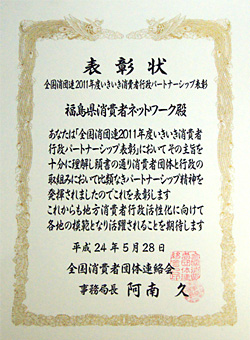 表彰状
全国消団連2011年度いきいき消費者行政パートナーシップ表彰
福島県消費者ネットワーク殿
あなたは「全国消団連2011年度いきいき消費者
行政パートナーシップ表彰」においてその主旨を
十分に理解し頭書の通り消費者団体と行政の
取組みにおいて比類なきパートナーシップ精神を
発揮されましたのでこれを表彰します
これからも地方消費者行政活性化に向けて
各地の模範となり活躍されることを期待します
平成24年5月28日
全国消費者団体連絡会
事務局長 阿南 久